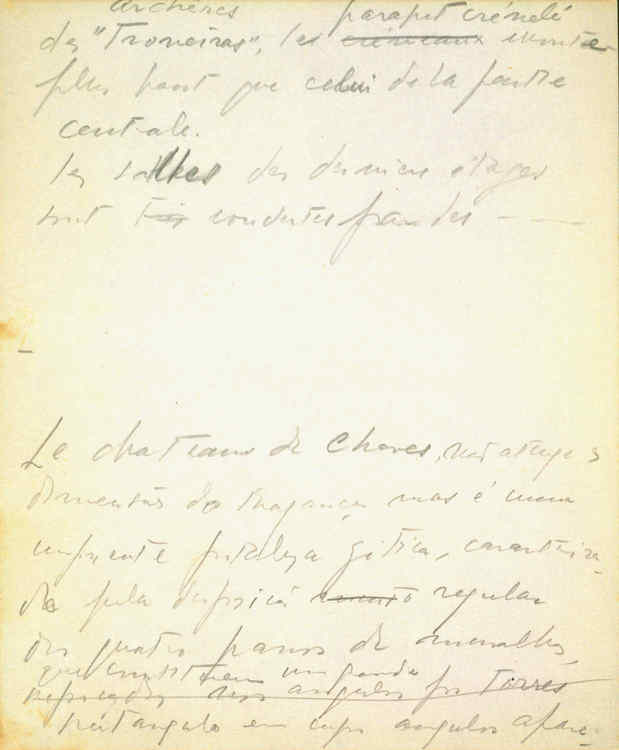 archères parapet crénelé
des "Troneiras", les créneaux monte
plus haut que celui de la partie
centrale.
Les salles des derniers étages
sont par des
Le chateau de Chaves, não atinge as
dimensões do Bragança, mas é uma
imponente fortaleza gótica, caracteriza-
da pela disposição muito regular
dos quatro panos de muralha,
que constituem um grande
reforçados nos angulos por torres
rectangulo em cujos angulos apare-